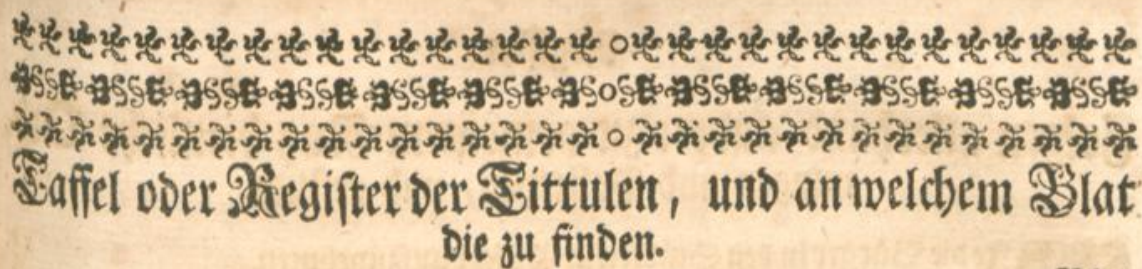 Taffel oder Register der Tittulen, und an welchem Blat
die zu finden.